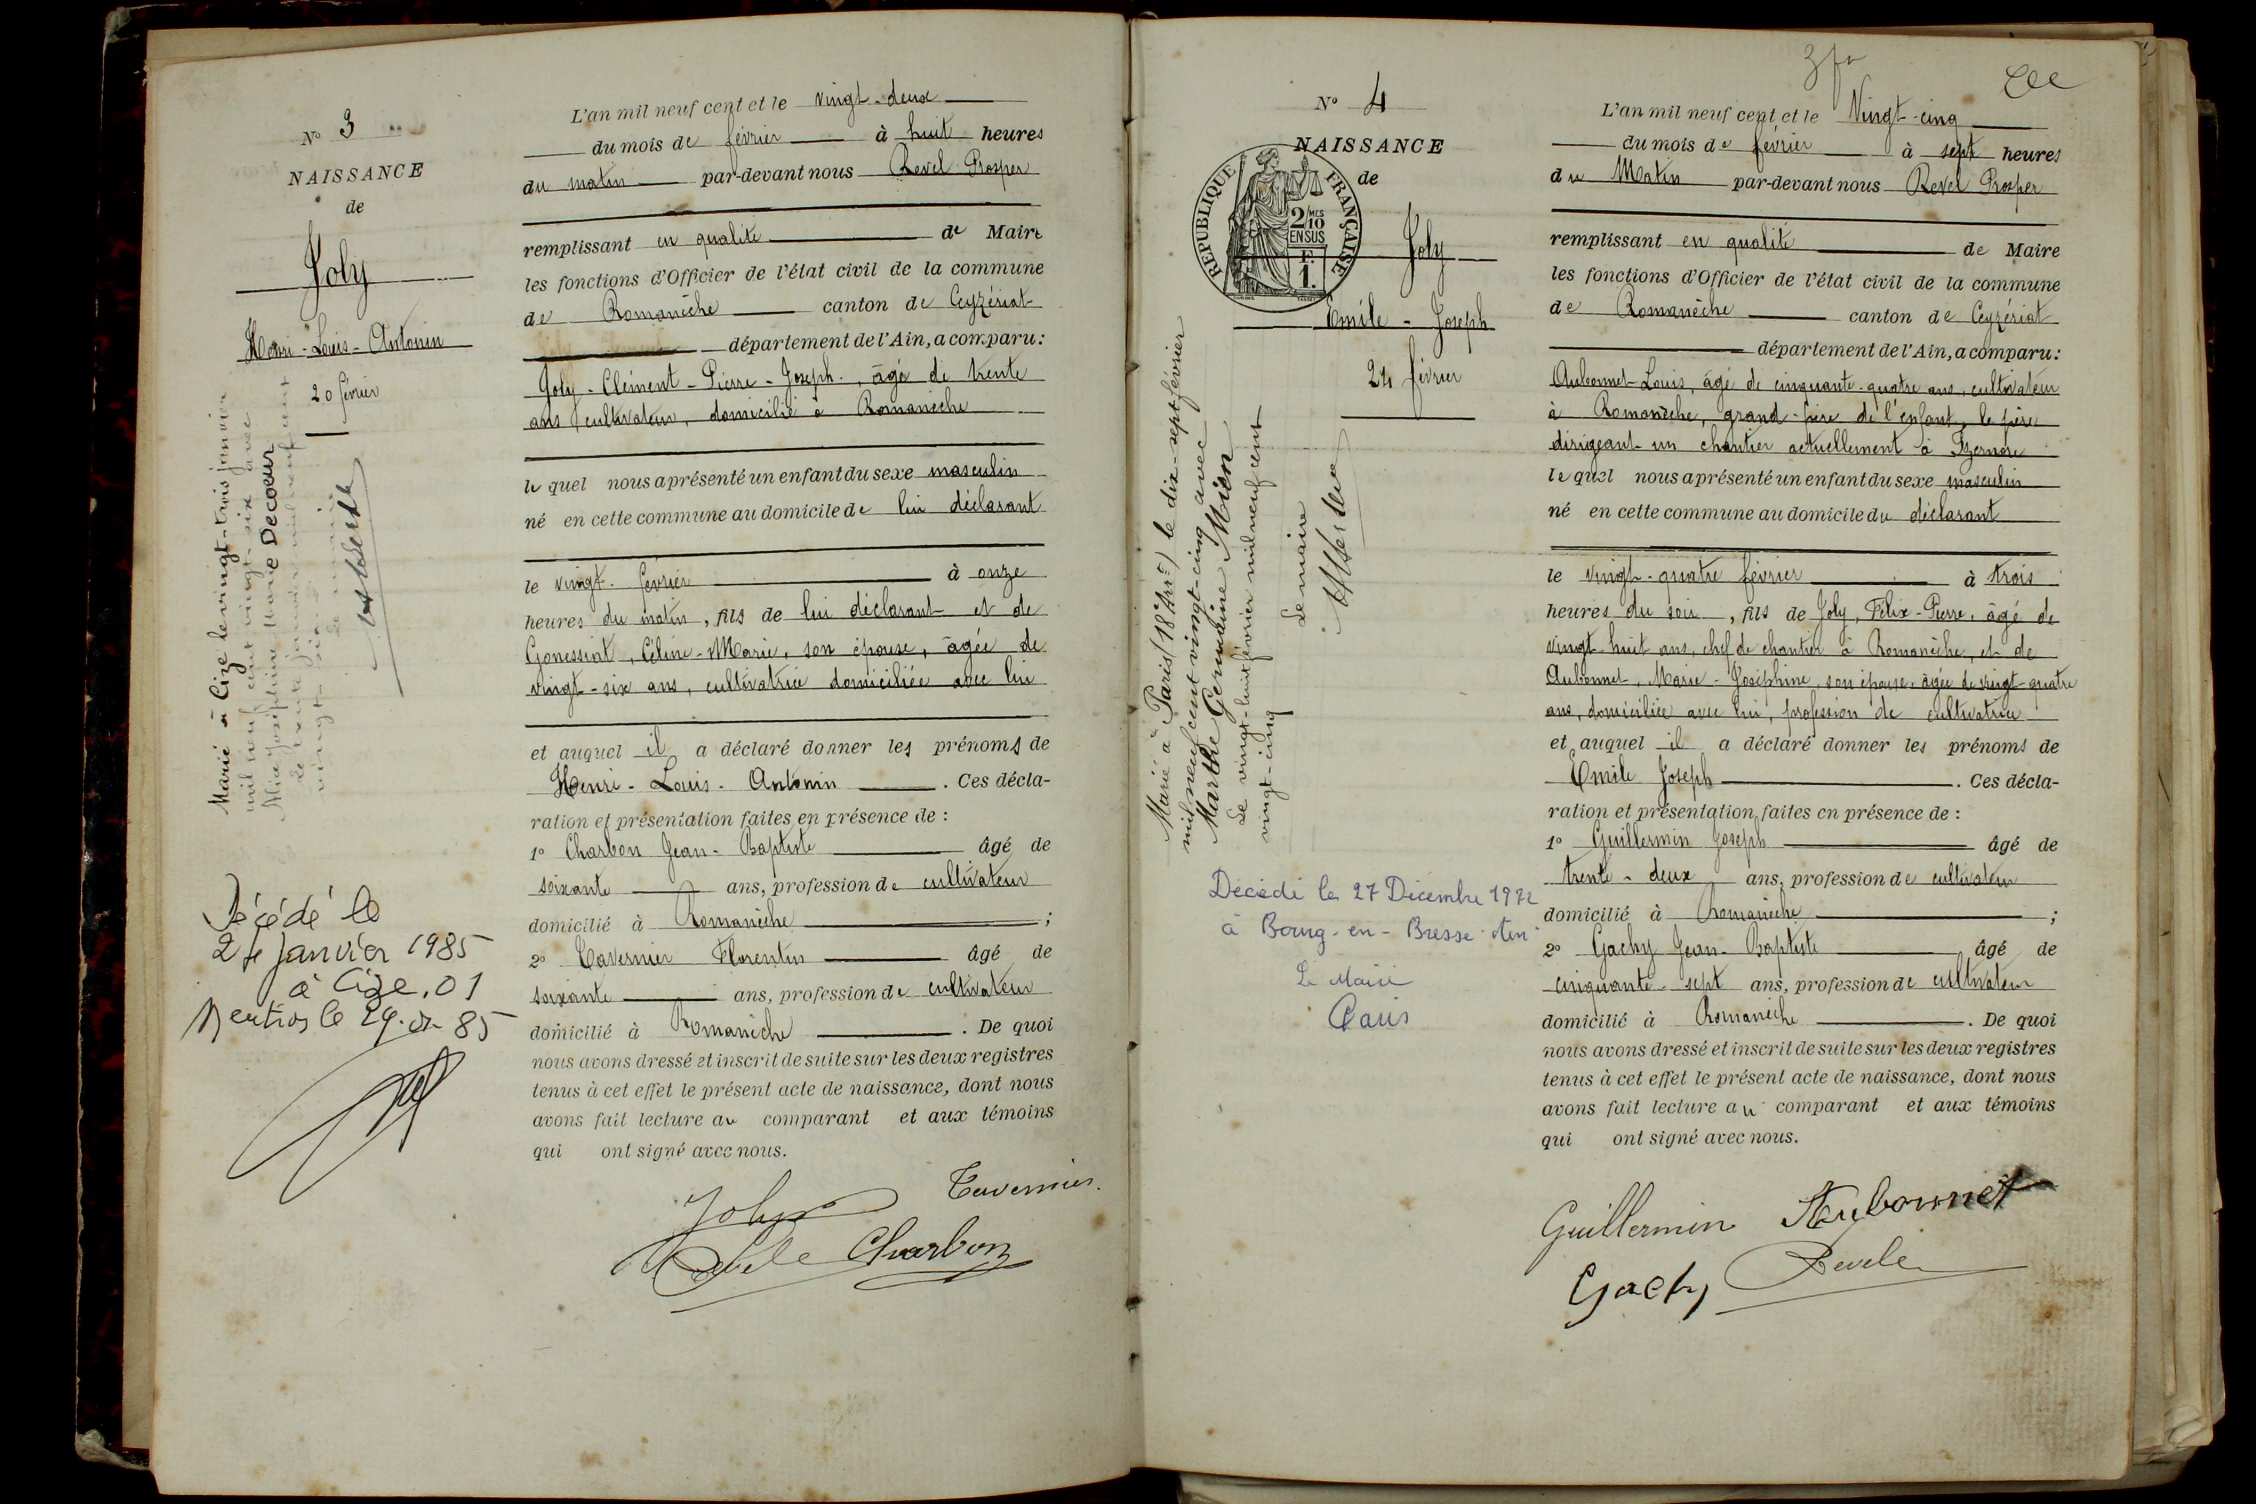 N° 3
NAISSANCE
de
Joly
Henri-Louis-Antonin
20 février
Marié à Cize le vingt-trois janvier
mil neuf cent vingt-six avec
Alice Joséphine Marie Decoeur
Le trente janvier mil neuf cent
vingt-six
Le maire
Décédé le
24 Janvier 1985
à Cize. 01
Mention le 29.01.85
L'an mil neuf cent et le vingt-deux
du mois de février à huit heures
du matin par-devant nous Revel Prosper
remplissant en qualité de Maire
les fonctions d'Officier de l'état civil de la commune
de Romanèche canton de Ceyzériat
département de l'Ain, a comparu:
Joly-Clément-Pierre-Joseph, âgé de trente
ans, cultivateur, domicilié à Romanèche
le quel nous a présenté un enfant du sexe masculin
né en cette commune au domicile de lui déclarant
le vingt février à onze
heures du matin, fils de lui déclarant et de
Gonessiat, Céline-Marie, son épouse, âgée de
vingt-six ans, cultivatrice domiciliée avec lui
et auquel il a déclaré donner les prénoms de
Henri-Louis-Antonin. Ces décla-
ration et présentation faites en présence de:
1° Charbon Jean-Baptiste âgé de
soixante ans, profession de cultivateur
domicilié à Romanèche;
2° Tavernier Florentin âgé de
soixante ans, profession de cultivateur
domicilié à Romanèche. De quoi
nous avons dressé et inscrit de suite sur les deux registres
tenus à cet effet le présent acte de naissance, dont nous
avons fait lecture au comparant et aux témoins
qui ont signé avec nous.
Joly Tavernier
Charbon
N° 4
NAISSANCE
de
REPUBLIQUE FRANÇAISE
2/10 MES
EN SUS
F.
1.
Joly
Emile-Joseph
24 février
Marié à Paris (18e Arrt) le dix-sept février
mil neuf cent vingt-cinq avec
Marthe Germaine Mien
Le vingt-huit février mil neuf cent
vingt-cinq
Le maire
Décédé le 27 Décembre 1972
à Bourg-en-Bresse Ain
Le Maire
3 fr
L'an mil neuf cent et le Vingt-cinq
du mois de février à sept heures
du Matin par-devant nous Revel Prosper
remplissant en qualité de Maire
les fonctions d'Officier de l'état civil de la commune
de Romanèche canton de Ceyzériat
département de l'Ain, a comparu:
Aubonnet Louis, âgé de cinquante-quatre ans, cultivateur
à Romanèche, grand-père de l'enfant, le père
dirigeant un chantier actuellement à Izernore
le quel nous a présenté un enfant du sexe masculin
né en cette commune au domicile du déclarant
le vingt-quatre février à trois
heures du soir, fils de Joly, Félix-Pierre, âgé de
vingt-huit ans, chef de chantier à Romanèche, et de
Aubonnet, Marie-Joséphine, son épouse, âgée de vingt-quatre
ans, domiciliée avec lui, profession de cultivatrice
et auquel il a déclaré donner les prénoms de
Emile Joseph. Ces décla-
ration et présentation faites en présence de:
1° Guillermin Joseph âgé de
trente-deux ans, profession de cultivateur
domicilié à Romanèche;
2° Gachy Jean-Baptiste âgé de
cinquante-sept ans, profession de cultivateur
domicilié à Romanèche. De quoi
nous avons dressé et inscrit de suite sur les deux registres
tenus à cet effet le présent acte de naissance, dont nous
avons fait lecture au comparant et aux témoins
qui ont signé avec nous.
Guillermin Aubonnet
Gachy